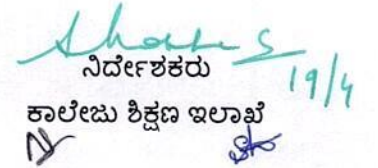 ನಿರ್ದೇಶಕರು
19/4
ಕಾಲೇಜು ಶಿಕ್ಷಣ ಇಲಾಖೆ